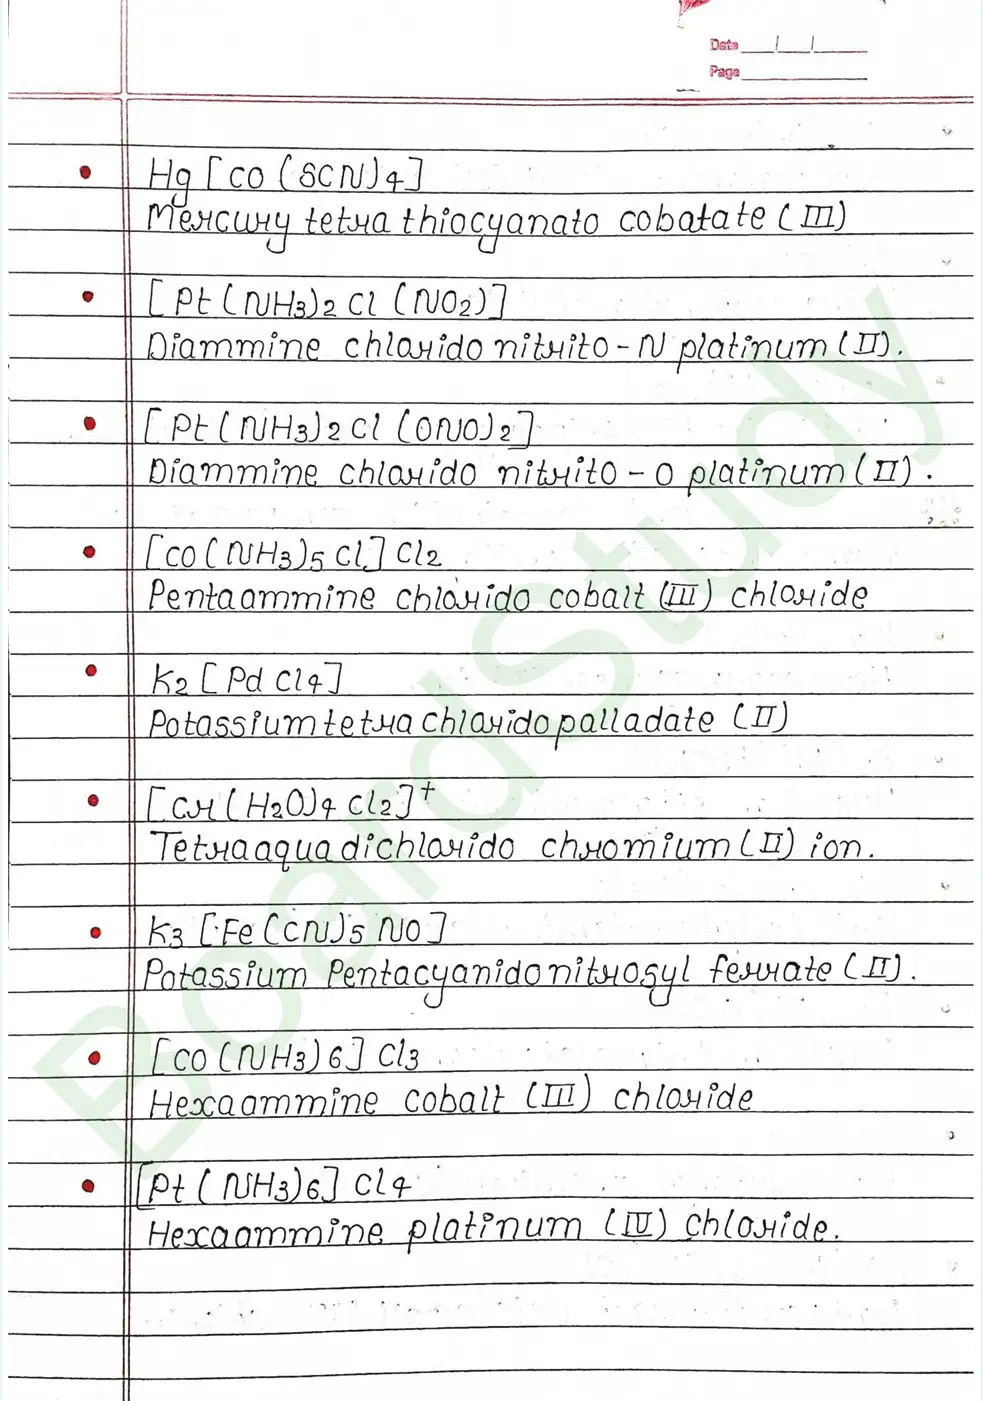 Date ___/___/______
Page ____________
Hg [Co (SCN)4]
Mercury tetra thiocyanato cobatate (III)
[Pt (NH3)2 Cl (NO2)]
Diammine chlorido nitrito - N platinum (II).
[Pt (NH3)2 Cl (ONO)2]
Diammine chlorido nitrito - O platinum (II).
[Co (NH3)5 Cl] Cl2
Pentaammine chlorido cobalt (III) chloride
K2 [Pd Cl4]
Potassium tetra chlorido palladate (II)
[Cr (H2O)4 Cl2]+
Tetraaqua dichlorido chromium (II) ion.
K3 [Fe (CN)5 NO]
Potassium Pentacyanidonitrosyl ferrate (II).
[Co (NH3) 6] Cl3
Hexaammine cobalt (III) chloride
[Pt (NH3)6] Cl4
Hexaammine platinum (IV) chloride.
BoardStudy